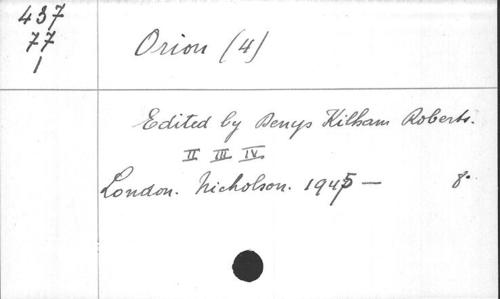 437
77
1
Orion (4)
Edited by Denys Kilham Roberts.
II III IV
London. Nicholson. 1945 — 8°